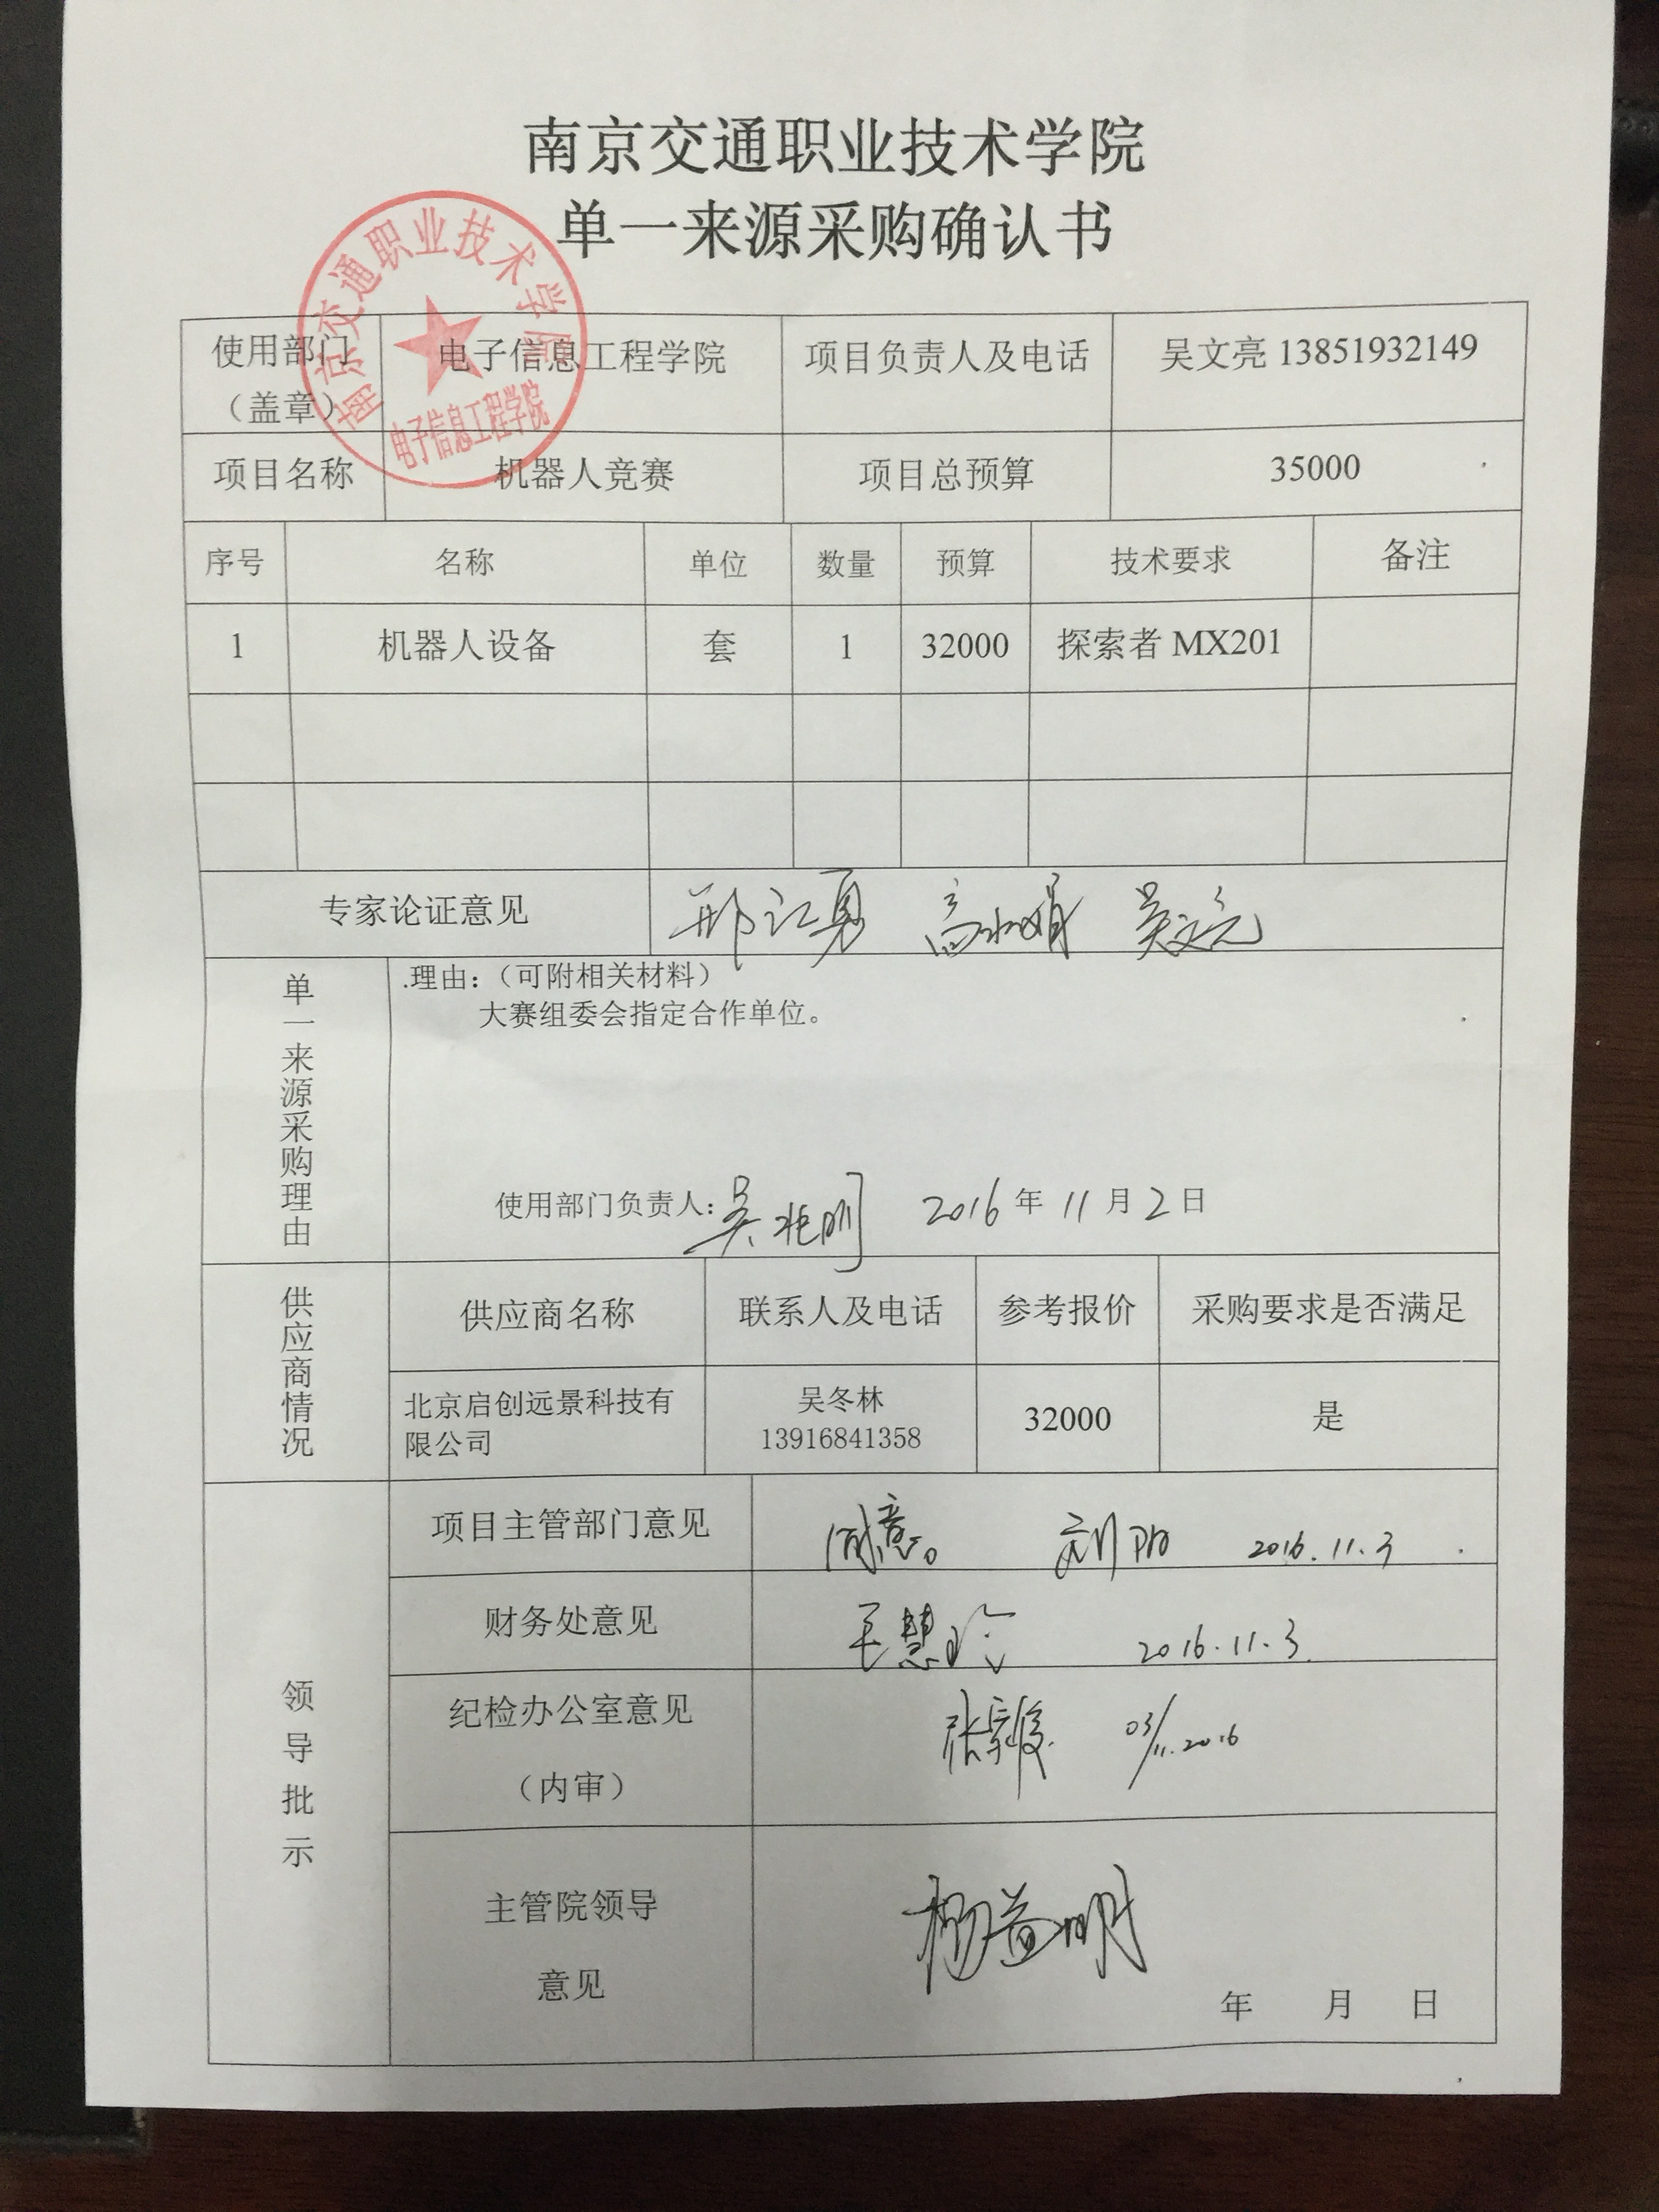 南京交通职业技术学院
单一来源采购确认书
南京交通职业技术学院
电子信息工程学院
使用部门
（盖章）
电子信息工程学院
项目负责人及电话
吴文亮 13851932149
项目名称
机器人竞赛
项目总预算
35000
序号 名称 单位 数量 预算 技术要求 备注
1 机器人设备 套 1 32000 探索者 MX201
专家论证意见
邢江勇 吴文亮
单一来源采购理由
.理由：（可附相关材料）
大赛组委会指定合作单位。
使用部门负责人：吴兆明 2016 年 11 月 2 日
供应商情况
供应商名称 联系人及电话 参考报价 采购要求是否满足
北京启创远景科技有
限公司
吴冬林
13916841358
32000
是
领导批示
项目主管部门意见
同意。 刘阳 2016.11.3
财务处意见
王慧玲 2016.11.3.
纪检办公室意见
（内审）
张 03/11.2016
主管院领导
意见
杨益明
年 月 日